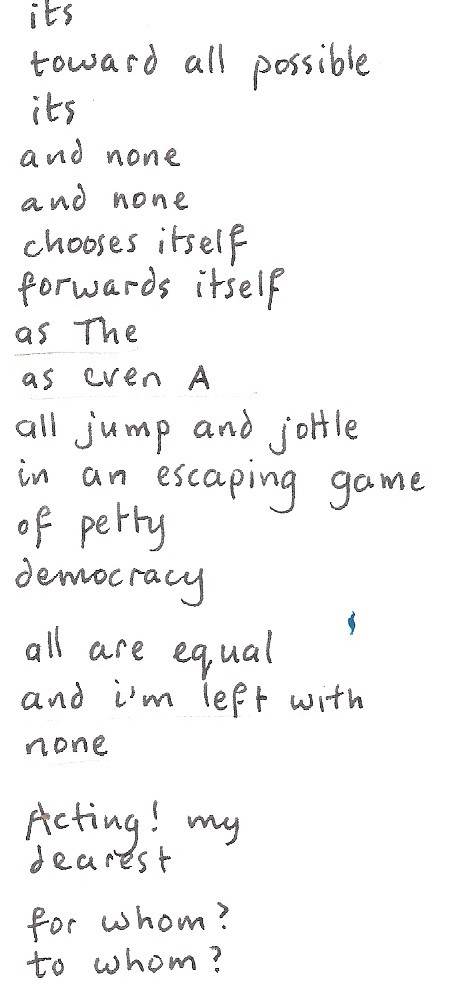 its
toward all possible
its
and none
and none
chooses itself
forwards itself
as The
as even A
all jump and jottle
in an escaping game
of petty
democracy
all are equal
and i'm left with
none
Acting! my
dearest
for whom?
to whom?